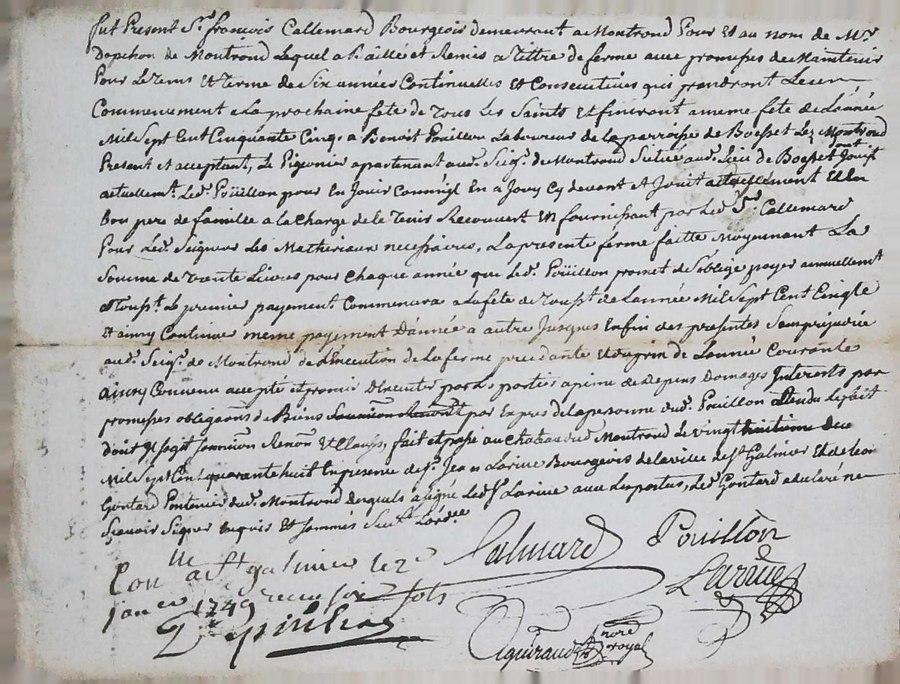 fut Present Sr. françois Callemard Bourgeois demeurant a Montrond Pour Et au nom de Mr.
Dapchon de Montrond Lequel a Baillé et Remis a tittre de ferme avec promesses de Maintenir
Pour Le tems Et terme de Six années Continuelles Et Consecutives qui prendront Leur
Commencement a La prochaine fete de Tous Les Saints Et finiront a meme fete de Lannée
Mil Sept Cent Cinquante Cinq a Benoit Poüillon Laboureur de la parroisse de Boesset Les Montrond
Present Et acceptant, Le Pigonier apartenant aud. Seigr. de Montrond Scitué aud. Lieu de Boesset dont Jouit
actuellemt. Led. Poüillon pour En Jouir Comme il En a Jouy Cy devant Et Jouit actuellement Et En
Bon pere de famille a la Charge de le Tenir Recouvert En fournissant par Led. Sr. Callemard
Pour Led. Seigneur Les Matheriaux necessaires, La presente ferme faitte Moyennant La
Somme de Trente Livres pour Chaque année que Led. Poüillon promet et Soblige payer annuellement
a Tousst. Le premier payement Commencera a La fete de Tousst. de Lannée Mil Sept Cent
Et ainsy Continuer meme payement Dannée a autre Jusques Enfin des presentes Sans prejudice
aud. Seigr. de Montrond de L'Execution de La ferme precedante Et du prix de Lannée Courante
ainsy Convenu accepté Et promis Executer par Les parties a peine de Depens Domages Interets par
promesses obligaons de Biens par Exprés de la personne dud. Poüillon attendu Le fait
dont Il Sagit Soumission Renon. Et Clauses, fait Et passé au Chateau dud. Montrond Le vingt huitieme
Mil Sept Cent quarante huit En presence de Sr. Jean Larive Bourgeois de la ville de St. Galmier Et de
Gontard Pontonier dud. Montrond desquels a signé Led. Sr. Larive avec Les parties, Led. Gontard a declaré ne
Sçavoir Signer Enquis Et Sommés
Calmard Pouillon
Con. lle a St galmier le 2e Larive
janer 1749 reçu six sols
Aguiraud nore royal